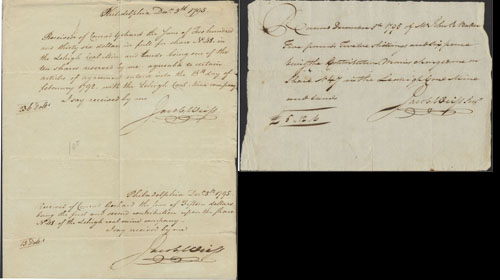 Philadelphia Dec. 3th 1793
Received of Conrad Gerhard the sum of two hundred
and thirty six dollars in full for share No. 38. in
the Lehigh coal mine and lands being one of the
ten shares reserved by me agreeable to certain
articles of agreement entered into the 13th day of
February 1792 with the Lehigh Coal mine company
I say received by me
Jacob Weiss
Philadelphia Dec. 3th 1793
Received of Conrad Gerhard the sum of Fifteen dollars
being the first and second contribution upon the share
No. 38 of the Lehigh coal mine company
I say received by me
15 Doll.
Jacob Weiss
Received December 5th by Mr. John
Five pounds Twelve shillings and six pence
being the
in the Lehigh Coal Mine
and lands
£ 5.12.6
Jacob Weiss